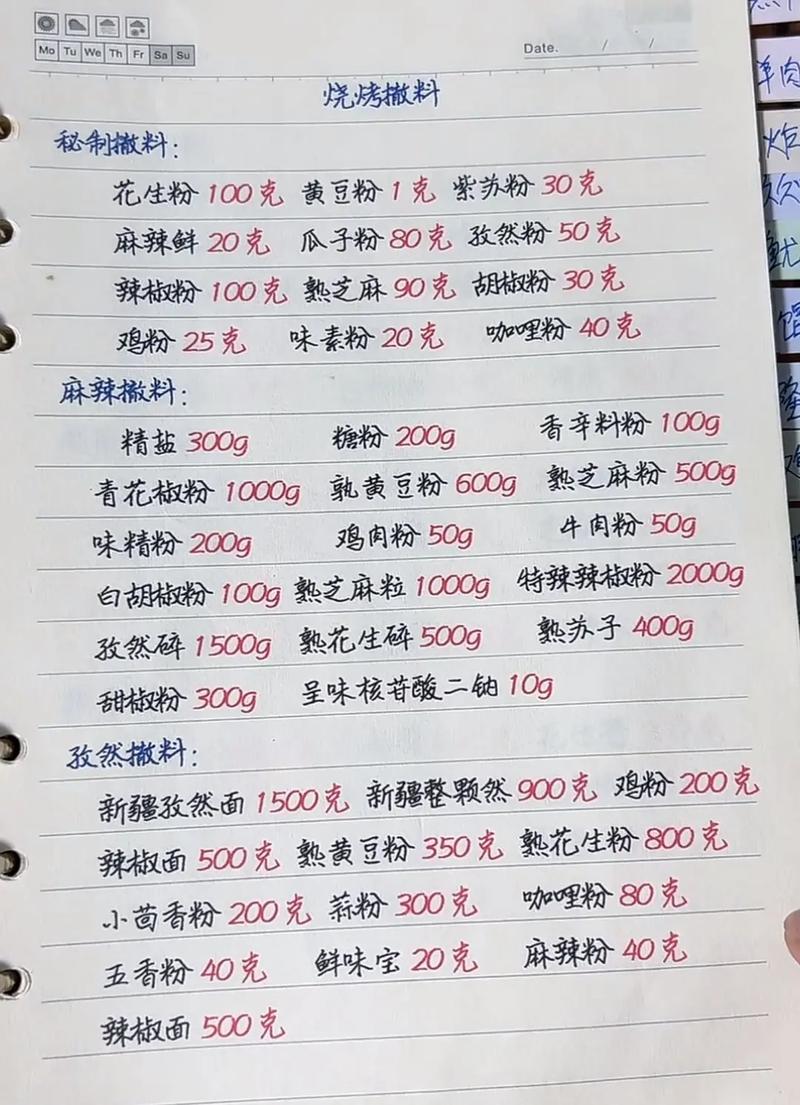 Mo Tu We Th Fr Sa Su
Date. / /
烧烤撒料
秘制撒料:
花生粉 100克 黄豆粉 1克 紫苏粉 30克
麻辣鲜 20克 瓜子粉 80克 孜然粉 50克
辣椒粉 100克 熟芝麻 90克 胡椒粉 30克
鸡粉 25克 味素粉 20克 咖哩粉 40克
麻辣撒料:
精盐 300g 糖粉 200g 香辛料粉 100g
青花椒粉 1000g 孰黄豆粉 600g 熟芝麻粉 500g
味精粉 200g 鸡肉粉 50g 牛肉粉 50g
白胡椒粉 100g 熟芝麻粒 1000g 特辣辣椒粉 2000g
孜然碎 1500g 熟花生碎 500g 熟苏子 400g
甜椒粉 300g 呈味核苷酸二钠 10g
孜然撒料:
新疆孜然面 1500克 新疆整颗然 900克 鸡粉 200克
辣椒面 500克 熟黄豆粉 350克 熟花生粉 800克
小茴香粉 200克 蒜粉 300克 咖哩粉 80克
五香粉 40克 鲜味宝 20克 麻辣粉 40克
辣椒面 500克
羊肉